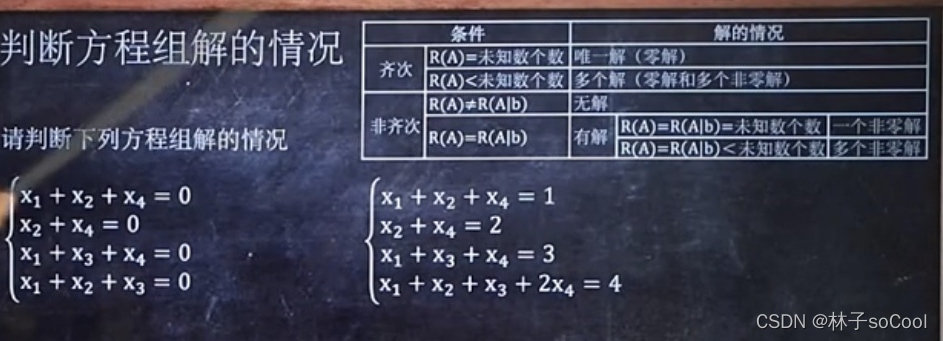 判断方程组解的情况
条件 解的情况
齐次 R(A)=未知数个数 唯一解（零解）
R(A)<未知数个数 多个解（零解和多个非零解）
非齐次 R(A)≠R(A|b) 无解
R(A)=R(A|b) 有解 R(A)=R(A|b)=未知数个数 一个非零解
R(A)=R(A|b)<未知数个数 多个非零解
请判断下列方程组解的情况
x₁ + x₂ + x₄ = 0
x₂ + x₄ = 0
x₁ + x₃ + x₄ = 0
x₁ + x₂ + x₃ = 0
x₁ + x₂ + x₄ = 1
x₂ + x₄ = 2
x₁ + x₃ + x₄ = 3
x₁ + x₂ + x₃ + 2x₄ = 4
CSDN @林子soCool